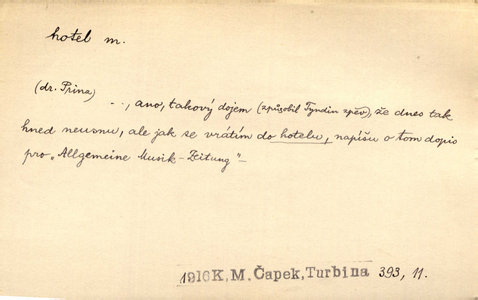 hotel m.
(dr. Prina) .., ano, takový dojem (způsobil Tyndin zpěv), že dnes tak
hned neusnu, ale jak se vrátím do hotelu, napíšu o tom dopis
pro „Allgemeine Musik-Zeitung" –
1916 K, M. Čapek, Turbina 393, 11.